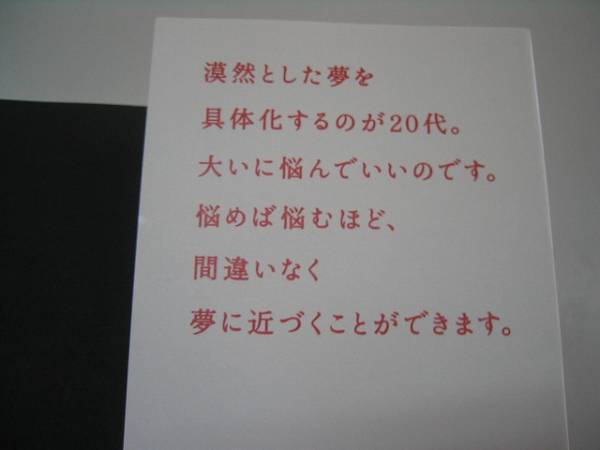 漠然とした夢を
具体化するのが20代。
大いに悩んでいいのです。
悩めば悩むほど、
間違いなく
夢に近づくことができます。